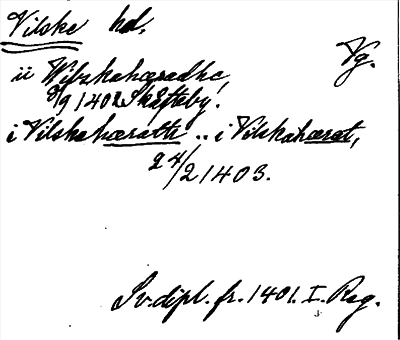 Vilske hd.
Vg.
ii Wilzkahæradhe
8/9 1402 Skefteby!
i Vilskahæratte .. i Vilskahærat,
24/2 1403.
Sv. dipl. fr. 1401. I. Reg.